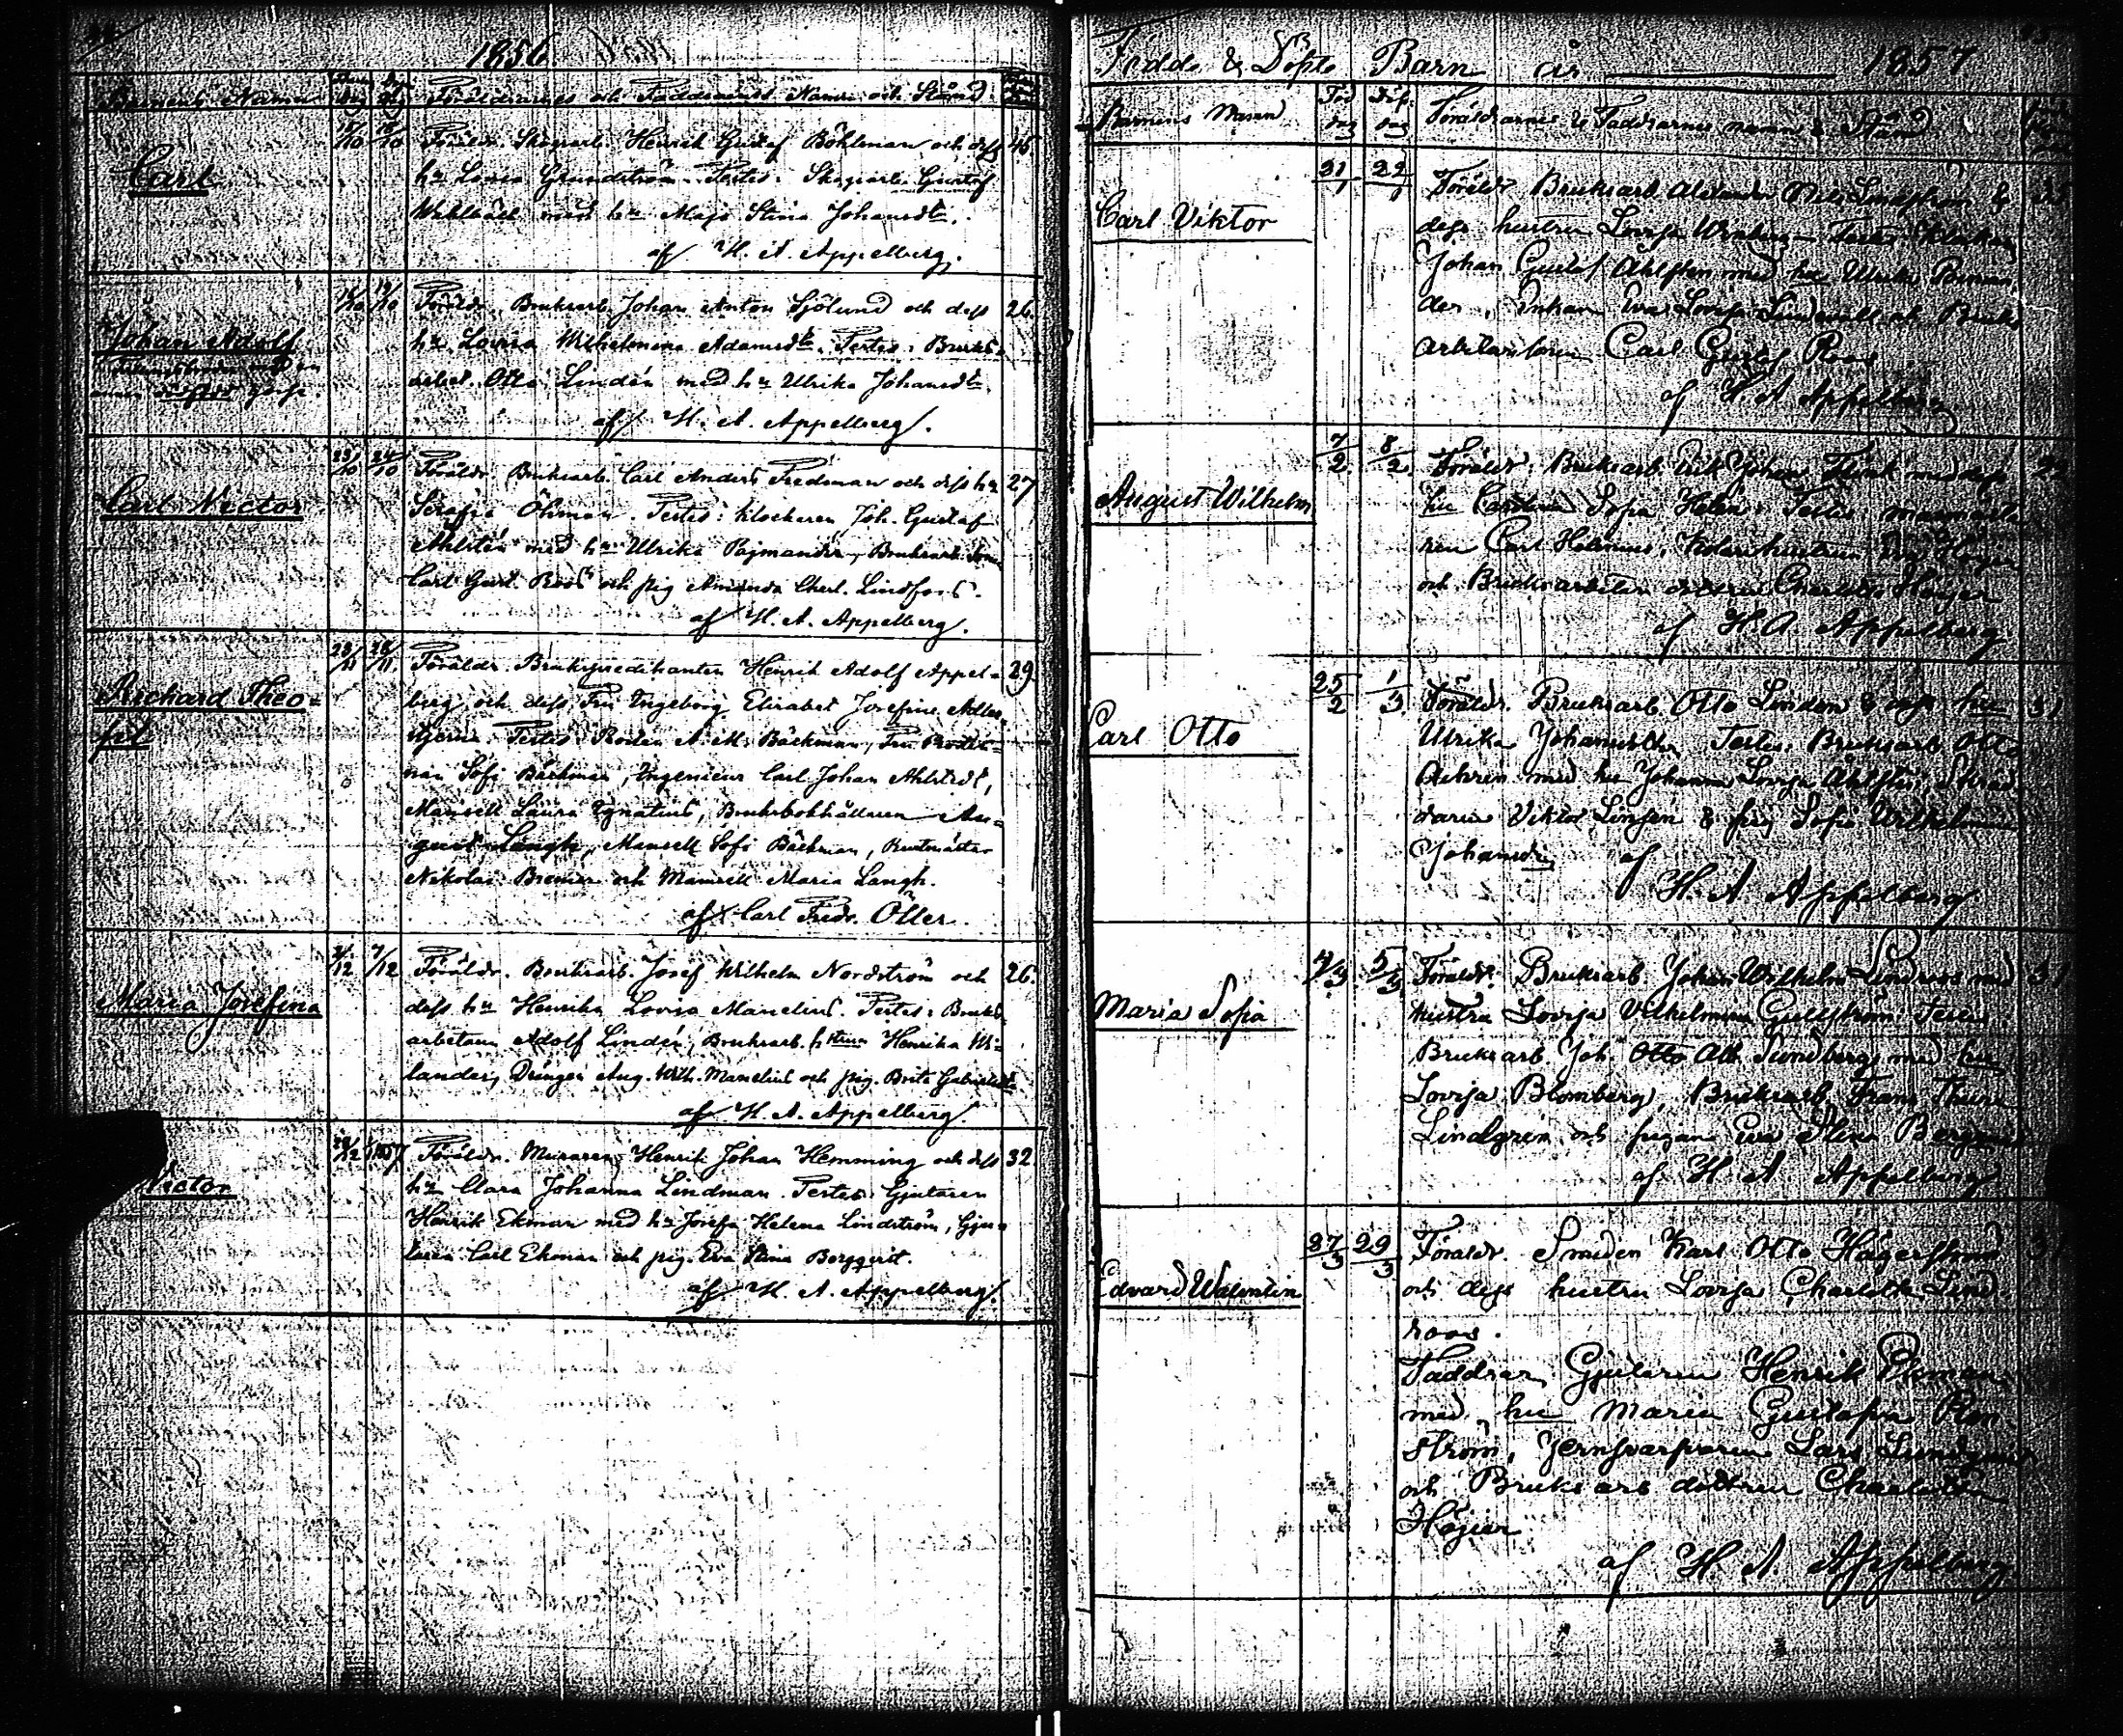 1856
Barnens Namn
Föräldrarnes och Faddrarnes Namn och Stånd
Carl
18/10 19/10
Föräldr. Skogsarb. Henrik Gustaf Böhlman och dess 45
hu Lovisa Grundström. Testes: Skogsarb. Gustaf
med hu Maja Stina Johansdtr.
af H. A. Appelberg.
Johan Adolf
Föräldr. Bruksarb. Johan Anton Sjölund och dess 26.
hu Lovisa Wilhelmina Adamsdtr. Testes: Bruks-
arbet. Otto Lindén med hu Ulrika Johansdtr.
af H. A. Appelberg.
Carl Victor
23/10 24/10
Föräldr. Bruksarb. Carl Anders Fredsman och dess hu 27
Serafia Öhman. Testes: Klockaren Joh. Gustaf
Ahlstén med hu Ulrika Bruksarb. son
Carl Gust. Roos och pig. Amanda Charl. Lindfors.
af H. A. Appelberg.
Richard Theo-
fil
23/11 28/11.
Föräldr. Brukspredikanten Henrik Adolf Appel- 29
berg och dess Fru Ingeborg Elisabet Josefine Adler-
stjerna. Testes: A. M. Bäckman, Fru
Sofi Bäckman, Ingenieur Carl Johan Ahlstedt,
Mamsell Laura Ignatius, Bruksbokhållaren Au-
gust Langh, Mamsell Sofi Bäckman, Rustmästar
Nikolai Bremer och Mamsell Maria Langh.
af Carl Fredr. Öller.
Maria Josefina
7/12
Föräldr. Bruksarb. Josef Wilhelm Nordström och 26.
dess hu Henrika Lovisa Manelius. Testes: Bruks-
arbetaren Adolf Lindén, Bruksarb. hstrun Henrika We-
lander, Drängen Aug. Wilh. Manelius och pig. Brita Gabrielsdtr
af H. A. Appelberg.
Victor
Föräldr. Muraren Henrik Johan Hemming och dess 32
hu Clara Johanna Lindman. Testes: Gjutaren
Henrik Ekman med hu Josefa Helena Lindström, Gju-
taren Carl Ekman och pig. Eva Stina Berggvist.
af H. A. Appelberg.
Födde & Döpte Barn år 1857
Barnens Namn
Föd dag
Döp. dag
Föräldrarnes & Faddrarnes namn & Stånd
Carl Viktor
21/1 22/1
Föräldr. Bruksarb. Alexander Nils Lindström &
dess hustru Lovisa Testes Klockaren
Johan Gustaf Ahlsten med hu Ulrika
der, Enkan Eva Lovisa Lindvall och Bruks
arbetar sonen Carl Gustaf Roos
af H A Appelberg
August Wilhelm
7/2 8/2
Föräldr. Bruksarb. Erik Johan med dess
hu Carolina Sofia Helén. Testes
ren Carl Holmius, Höijer
och Bruksarbetar dottren Charlotta Höijer
af H. A. Appelberg
Carl Otto
25/2 1/3
Föräldr. Bruksarb. Otto Linden & dess hu 31
Ulrika Johansdtr Testes. Bruksarb. Otto
med hu Johanna Lovisa Ahlsten, Skräd-
daren Viktor Linsén & pig Sofia Wilhelmina
Johansdr af
H. A. Appelberg
Maria Sofia
4/3 5/3
Föräldr. Bruksarb. Johan Wilhelm Lindroos med 31
hustru Lovisa Vilhelmina Gullström. Testes
Bruksarb. Joh. Otto Alb. Sundberg med hu
Lovisa Blomberg, Bruksarb. Frans Thure
Lindgren och pigan Eva Stina
af H. A. Appelberg
Edvard Walentin
27/3 29/3
Föräldr. Smeden Karl Otto Hägerström
och dess hustru Lovisa Charlotta Lind-
roos.
Faddrar, Gjutaren Henrik Ekman
med hu Maria Gustafva Ren-
ström, Jernsvarfvaren Lars Lundgren
och Bruks arb dottren Charlotta
Höjier
af H. A. Appelberg